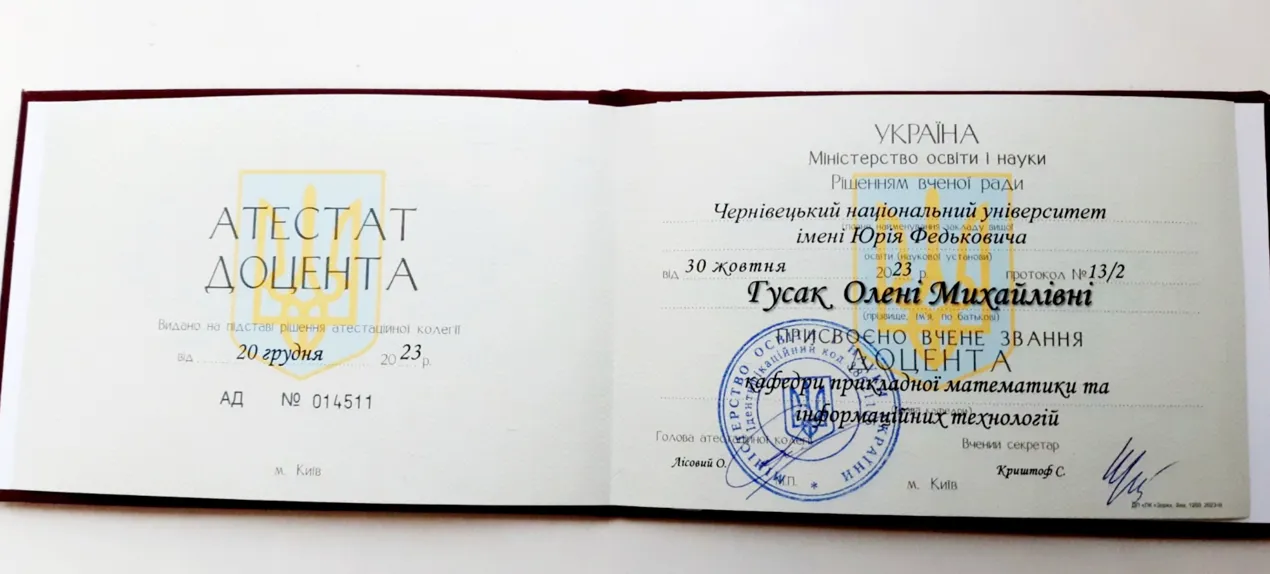 АТЕСТАТ
ДОЦЕНТА
Видано на підставі рішення атестаційної колегії
від 20 грудня 2023 р.
АД № 014511
м. Київ
УКРАЇНА
Міністерство освіти і науки
Рішенням вченої ради
Чернівецький національний університет
(повне найменування закладу вищої
імені Юрія Федьковича
освіти (наукової установи)
від 30 жовтня 2023 р. протокол №13/2
Гусак Олені Михайлівні
(прізвище, ім'я, по батькові)
ПРИСВОЄНО ВЧЕНЕ ЗВАННЯ
ДОЦЕНТА
кафедри прикладної математики та
інформаційних технологій
Голова атестаційної колегії
Вчений секретар
Лісовий О.
Криштоф С.
М.П.
м. Київ
МІНІСТЕРСТВО ОСВІТИ І НАУКИ УКРАЇНИ
Ідентифікаційний код